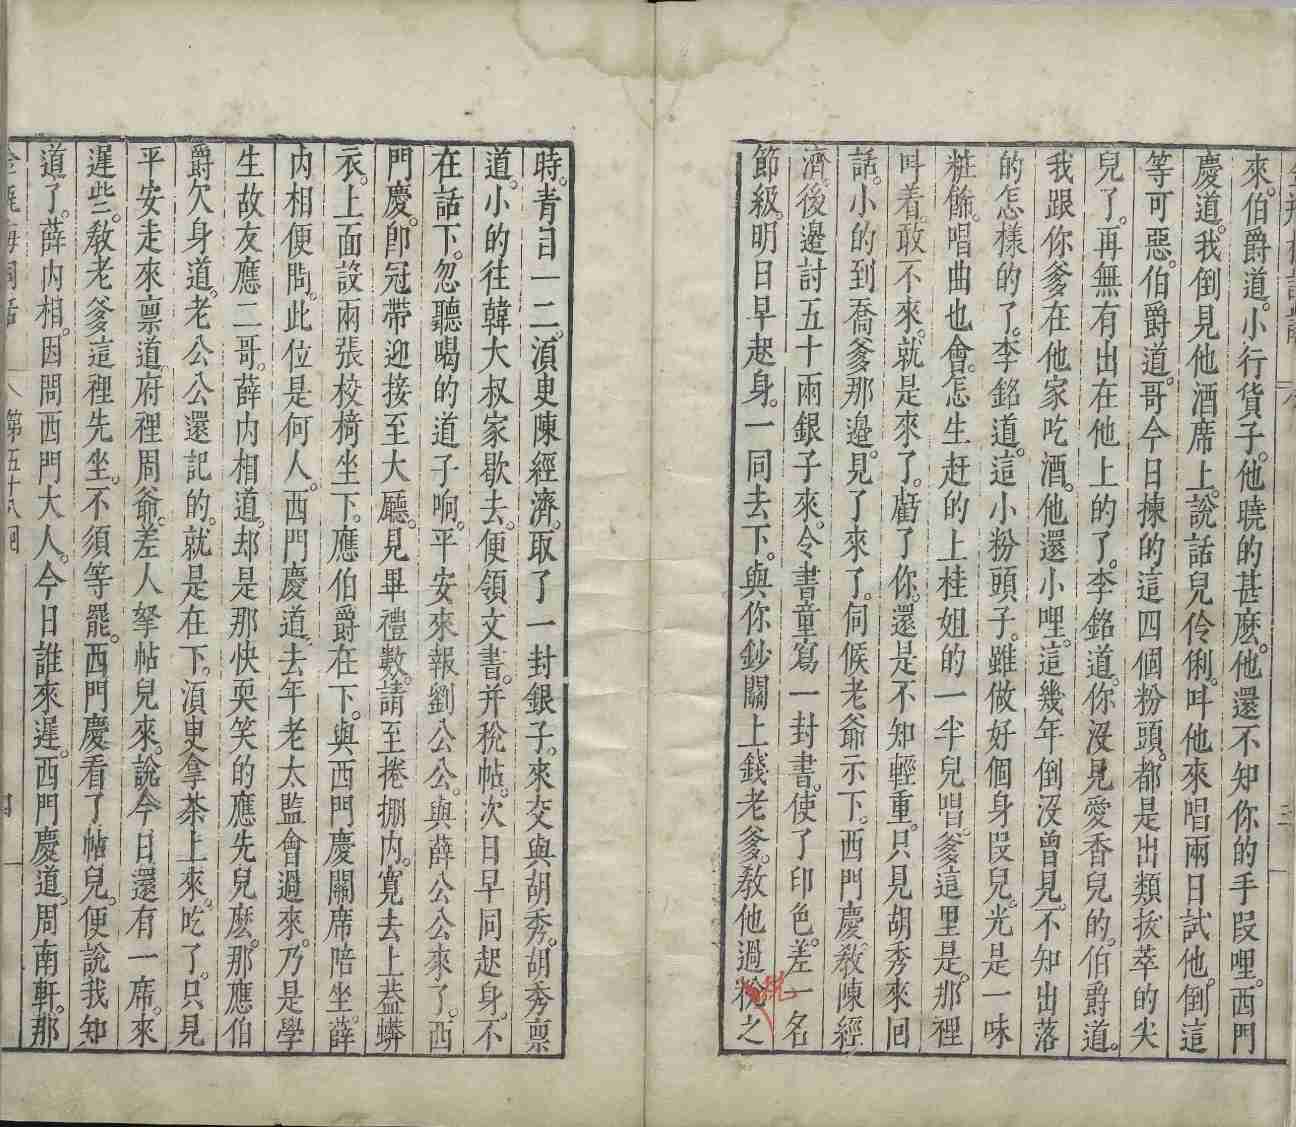 來。伯爵道。小行貨子。他曉的甚麽。他還不知你的手段哩。西門
慶道。我倒見他酒席上。說話兒伶俐。叫他來唱兩日試他。倒這
等可惡。伯爵道。哥今日揀的這四個粉頭。都是出類拔萃的尖
兒了。再無有出在他上的了。李銘道。你沒見愛香兒的。伯爵道。
我跟你爹在他家吃酒。他還小哩。這幾年倒沒曾見。不知出落
的怎樣的了。李銘道。這小粉頭子。雖做好個身段兒。光是一味
粧餙。唱曲也會。怎生赶的上桂姐的一半兒唱。爹這里是。那裡
叫着。敢不來。就是來了。虧了你。還是不知輕重。只見胡秀來回
話。小的到喬爹那邊。見了來了。伺候老爺示下。西門慶敎陳經
濟。後邊討五十兩銀子來。令書童寫一封書。使了印色。差一名
節級。明日早起身。一同去下。與你鈔關上錢老爹。敎他過稅之
時。青目一二。湏史陳經濟。取了一封銀子。來交與胡秀。胡秀禀
道。小的往韓大叔家歇去。便領文書。并稅帖。次日早同起身。不
在話下。忽聽喝的道子响。平安來報劉公公。與薛公公來了。西
門慶。卽冠帶迎接至大廳。見畢禮數。請至捲棚内。寬去上盖蟒
衣。上面設兩張校椅坐下。應伯爵在下。與西門慶關席陪坐。薛
内相便問。此位是何人。西門慶道。去年老太監會過來。乃是學
生故友應二哥。薛内相道。却是那快耍笑的應先兒麽。那應伯
爵欠身道。老公公還記的。就是在下。湏臾拿茶上來。吃了。只見
平安走來禀道。府裡周爺。差人拏帖兒來。說今日還有一席。來
遲些。敎老爹這裡先坐。不須等罷。西門慶看了帖兒。便說我知
道了。薛内相。因問西門大人。今日誰來遲。西門慶道。周南軒。那
第五十八囘